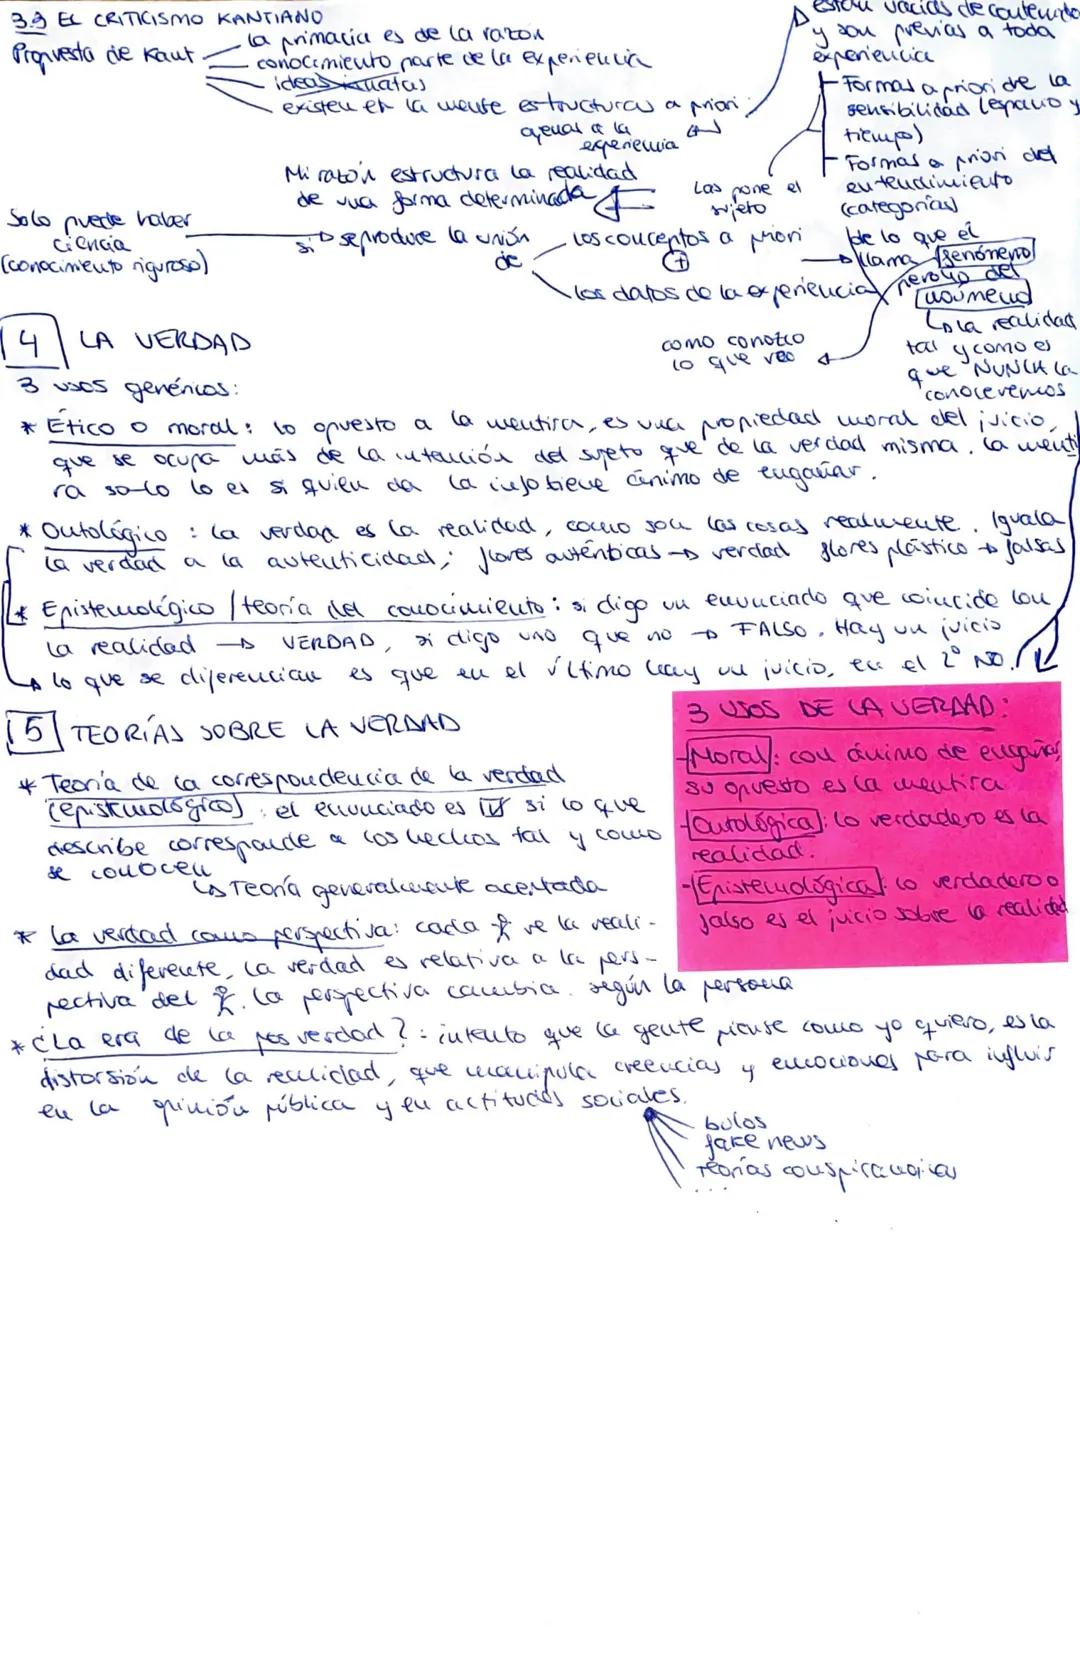 3.3 EL CRITICISMO KANTIANO
Propuesta de Kant
la primacía es de la razón
conocimiento parte de la experiencia
ideas innatas
existen en la mente estructuras a priori
ajenas a la
experiencia
están vacías de contenido
y son previas a toda
experiencia
Formas a priori de la
sensibilidad (espacio y
tiempo)
Formas a priori del
entendimiento
(categorías)
Las pone el
sujeto
Mi razón estructura la realidad
de una forma determinada
Solo puede haber
ciencia
(conocimiento riguroso)
si
se produce la unión
de
los conceptos a priori
+
los datos de la experiencia
de lo que él
llama fenómeno
pero no del
noúmeno
la realidad
tal y como es
que NUNCA la
conoceremos
como conozco
lo que veo
4 LA VERDAD
3 usos genéricos:
* Ético o moral: lo opuesto a la mentira, es una propiedad moral del juicio,
que se ocupa más de la intención del sujeto que de la verdad misma. La menti
ra solo lo es si quien da la info tiene ánimo de engañar.
* Ontológico: la verdad es la realidad, como son las cosas realmente. Iguala
la verdad a la autenticidad; flores auténticas → verdad flores plástico → falsas
* Epistemológico / teoría del conocimiento: si digo un enunciado que coincide con
la realidad → VERDAD, si digo uno que no → FALSO. Hay un juicio
lo que se diferencian es que en el último hay un juicio, en el 2º NO.
5 TEORÍAS SOBRE LA VERDAD
* Teoría de la correspondencia de la verdad
(epistemológico): el enunciado es V si lo que
describe corresponde a los hechos tal y como
se conocen
↳ Teoría generalmente aceptada
* La verdad como perspectiva: cada ve la reali-
dad diferente, la verdad es relativa a la pers-
pectiva del . La perspectiva cambia según la persona
* ¿La era de la posverdad?: intento que la gente piense como yo quiero, es la
distorsión de la realidad, que manipula creencias y emociones para influir
en la opinión pública y en actitudes sociales.
bulos
fake news
teorías conspiranoicas
...
3 USOS DE LA VERDAD:
- Moral: con ánimo de engañar,
su opuesto es la mentira
- Ontológica: lo verdadero es la
realidad.
- Epistemológica: lo verdadero o
falso es el juicio sobre la realidad